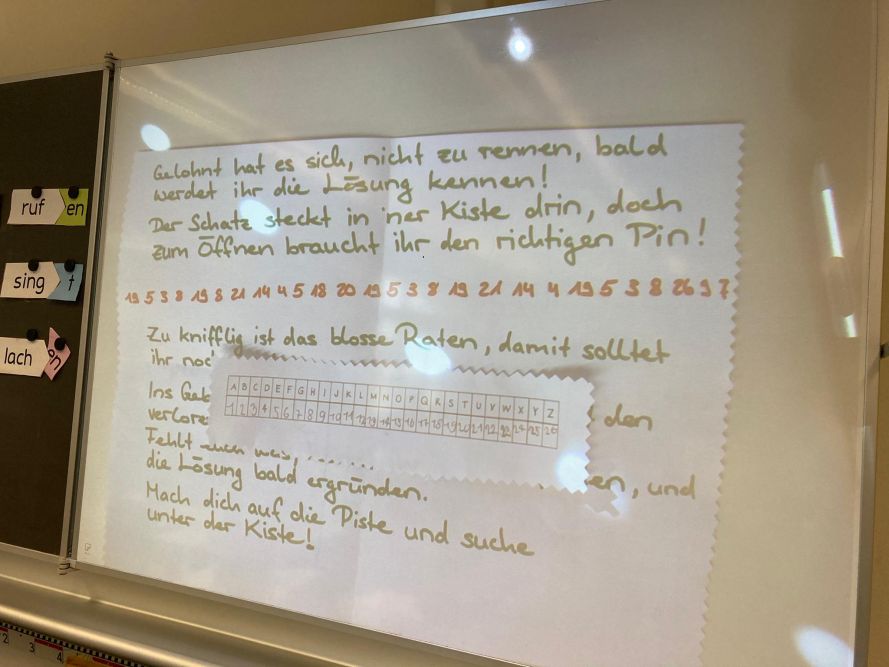 ruf en
sing t
lach en
Gelohnt hat es sich, nicht zu rennen, bald
werdet ihr die Lösung kennen!
Der Schatz steckt in 'ner Kiste drin, doch
zum Öffnen braucht ihr den richtigen Pin!
19 5 3 8 19 8 21 14 4 5 18 20 19 5 3 8 19 21 14 4 19 5 3 8 26 9 7
Zu knifflig ist das blosse Raten, damit solltet
ihr
A B C D E F G H I J K L M N O P Q R S T U V W X Y Z
1 2 3 4 5 6 7 8 9 10 11 12 13 14 15 16 17 18 19 20 21 22 23 24 25 26
Ins
den
Fehlt
und
die Lösung bald ergründen.
Mach dich auf die Piste und suche
unter der Kiste!
2 3 4